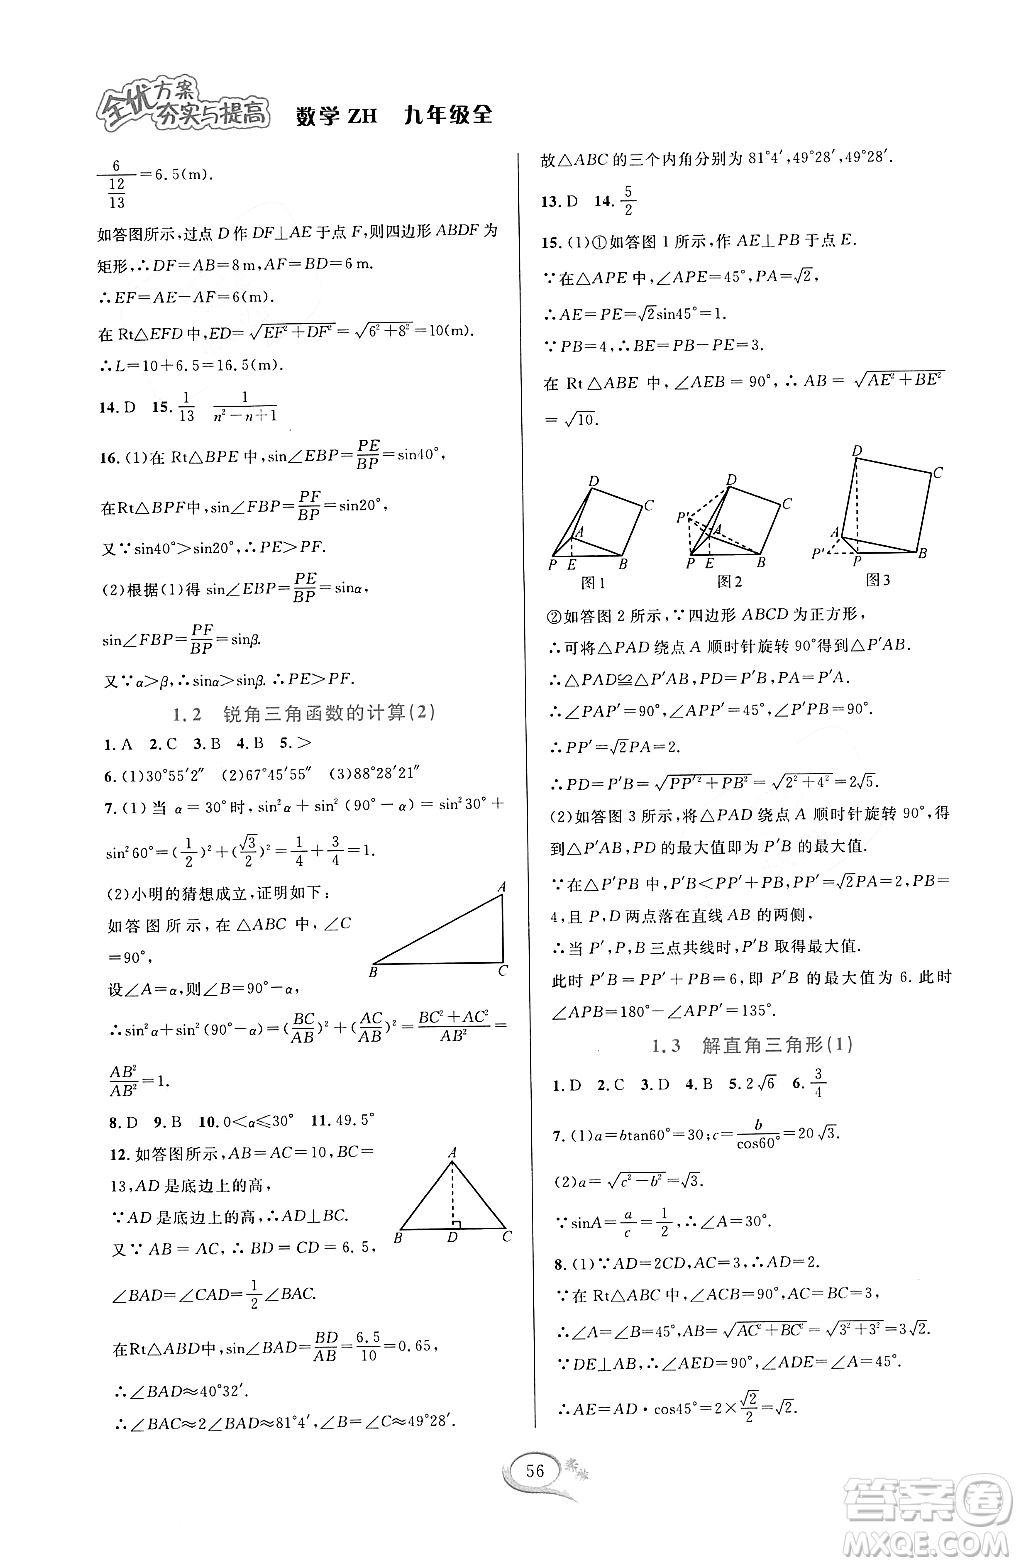 全优方案
夯实与提高 数学 ZH 九年级全
6/(12/13)=6.5(m).
如答图所示,过点 D 作 DF⊥AE 于点 F,则四边形 ABDF 为
矩形,∴DF=AB=8 m,AF=BD=6 m.
∴EF=AE−AF=6(m).
在 Rt△EFD 中,ED=√(EF²+DF²)=√(6²+8²)=10(m).
∴L=10+6.5=16.5(m).
14. D 15. 1/13 1/(n²−n+1)
16. (1)在 Rt△BPE 中,sin∠EBP=PE/BP=sin40°,
在Rt△BPF中,sin∠FBP=PF/BP=sin20°,
又∵sin40°>sin20°,∴PE>PF.
(2)根据(1)得 sin∠EBP=PE/BP=sinα,
sin∠FBP=PF/BP=sinβ.
又∵α>β,∴sinα>sinβ.∴PE>PF.
1.2 锐角三角函数的计算(2)
1. A 2. C 3. B 4. B 5. >
6. (1)30°55′2″ (2)67°45′55″ (3)88°28′21″
7. (1)当 α=30°时,sin²α+sin²(90°−α)=sin²30°+
sin²60°=(1/2)²+(√3/2)²=1/4+3/4=1.
(2)小明的猜想成立,证明如下:
如答图所示,在△ABC 中,∠C
=90°,
设∠A=α,则∠B=90°−α,
∴sin²α+sin²(90°−α)=(BC/AB)²+(AC/AB)²=(BC²+AC²)/AB²=
AB²/AB²=1.
A
B
C
8. D 9. B 10. 0<α≤30° 11. 49.5°
12. 如答图所示,AB=AC=10,BC=
13,AD 是底边上的高,
∵AD 是底边上的高,∴AD⊥BC.
又∵AB=AC,∴BD=CD=6.5,
∠BAD=∠CAD=1/2∠BAC.
在Rt△ABD中,sin∠BAD=BD/AB=6.5/10=0.65,
∴∠BAD≈40°32′.
∴∠BAC≈2∠BAD≈81°4′,∠B=∠C≈49°28′.
A
B D C
故△ABC 的三个内角分别为 81°4′,49°28′,49°28′.
13. D 14. 5/2
15. (1)①如答图 1 所示,作 AE⊥PB 于点 E.
∵在△APE 中,∠APE=45°,PA=√2,
∴AE=PE=√2sin45°=1.
∵PB=4,∴BE=PB−PE=3.
在 Rt△ABE 中,∠AEB=90°,∴AB=√(AE²+BE²)
=√10.
D C A P E B
图1
D C P′ A P E B
图2
D C A P′ P B
图3
②如答图 2 所示,∵四边形 ABCD 为正方形,
∴可将△PAD 绕点 A 顺时针旋转 90°得到△P′AB.
∴△PAD≌△P′AB,PD=P′B,PA=P′A.
∴∠PAP′=90°,∠APP′=45°,∠P′PB=90°.
∴PP′=√2PA=2.
∴PD=P′B=√(PP′²+PB²)=√(2²+4²)=2√5.
(2)如答图 3 所示,将△PAD 绕点 A 顺时针旋转 90°,得
到△P′AB,PD 的最大值即为 P′B 的最大值.
∵在△P′PB 中,P′B<PP′+PB,PP′=√2PA=2,PB=
4,且 P,D 两点落在直线 AB 的两侧,
∴当 P′,P,B 三点共线时,P′B 取得最大值.
此时 P′B=PP′+PB=6,即 P′B 的最大值为 6. 此时
∠APB=180°−∠APP′=135°.
1.3 解直角三角形(1)
1. D 2. C 3. D 4. B 5. 2√6 6. 3/4
7. (1)a=btan60°=30;c=b/cos60°=20√3.
(2)a=√(c²−b²)=√3.
∵sinA=a/c=1/2,∴∠A=30°,∠B=60°.
8. (1)∵AD=2CD,AC=3,∴AD=2.
∵在 Rt△ABC 中,∠ACB=90°,AC=BC=3,
∴∠A=∠B=45°,AB=√(AC²+BC²)=√(3²+3²)=3√2.
∵DE⊥AB,∴∠AED=90°,∠ADE=∠A=45°.
∴AE=AD·cos45°=2×√2/2=√2.
56
答案圈
MXQE.COM